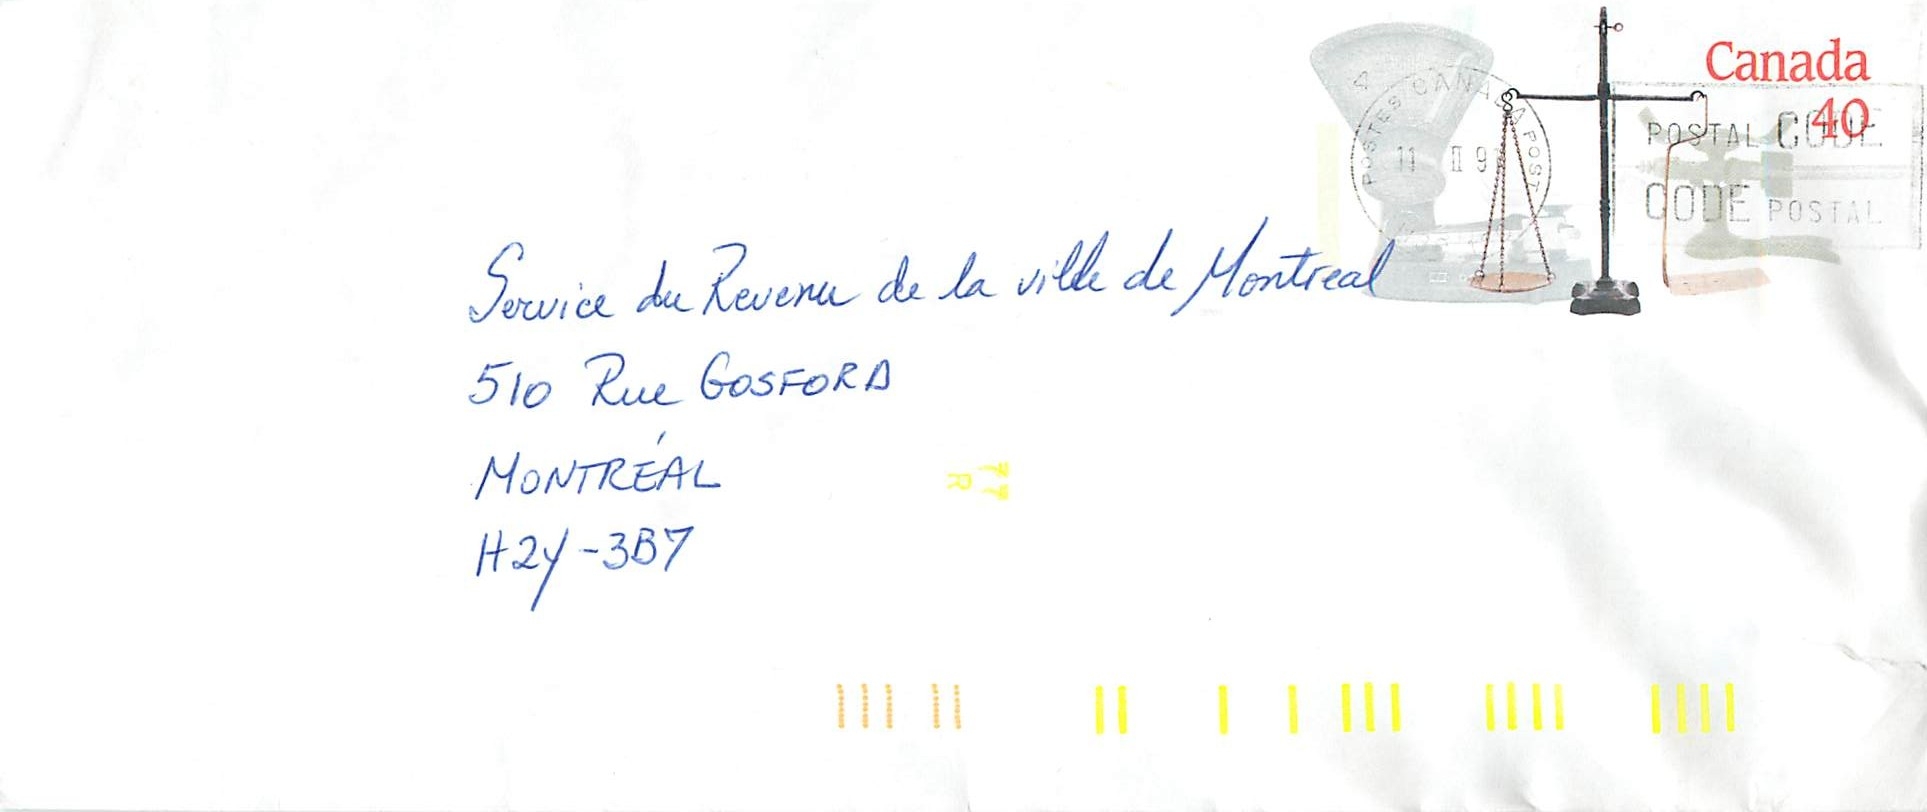 Canada
40
POSTES CANADA POST
11 II 9
POSTAL CODE
CODE POSTAL
Service du Revenu de la ville de Montreal
510 Rue GOSFORD
MONTRÉAL
H2Y-3B7
77
R